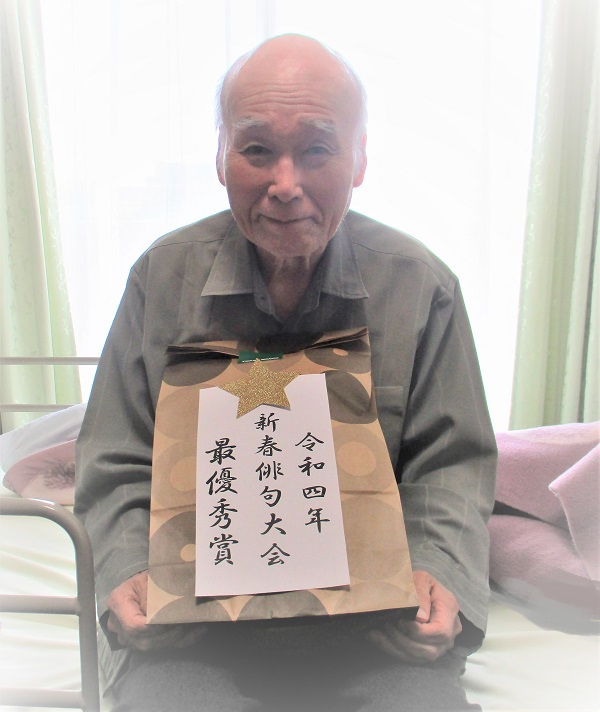 令和四年
新春俳句大会
最優秀賞